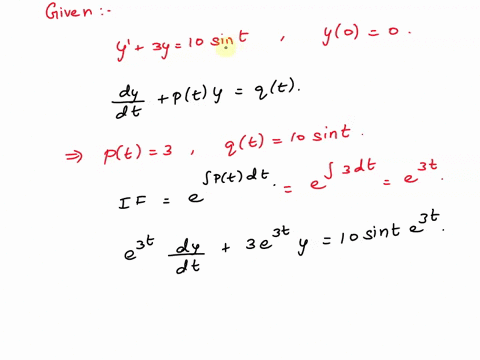 Given :-
y' + 3y = 10 sin t , y(0) = 0.
dy/dt + P(t) y = q(t).
⇒ P(t) = 3 , q(t) = 10 sin t.
IF = e^{∫P(t) dt} = e^{∫3dt} = e^{3t}.
e^{3t} dy/dt + 3e^{3t} y = 10 sin t e^{3t}.